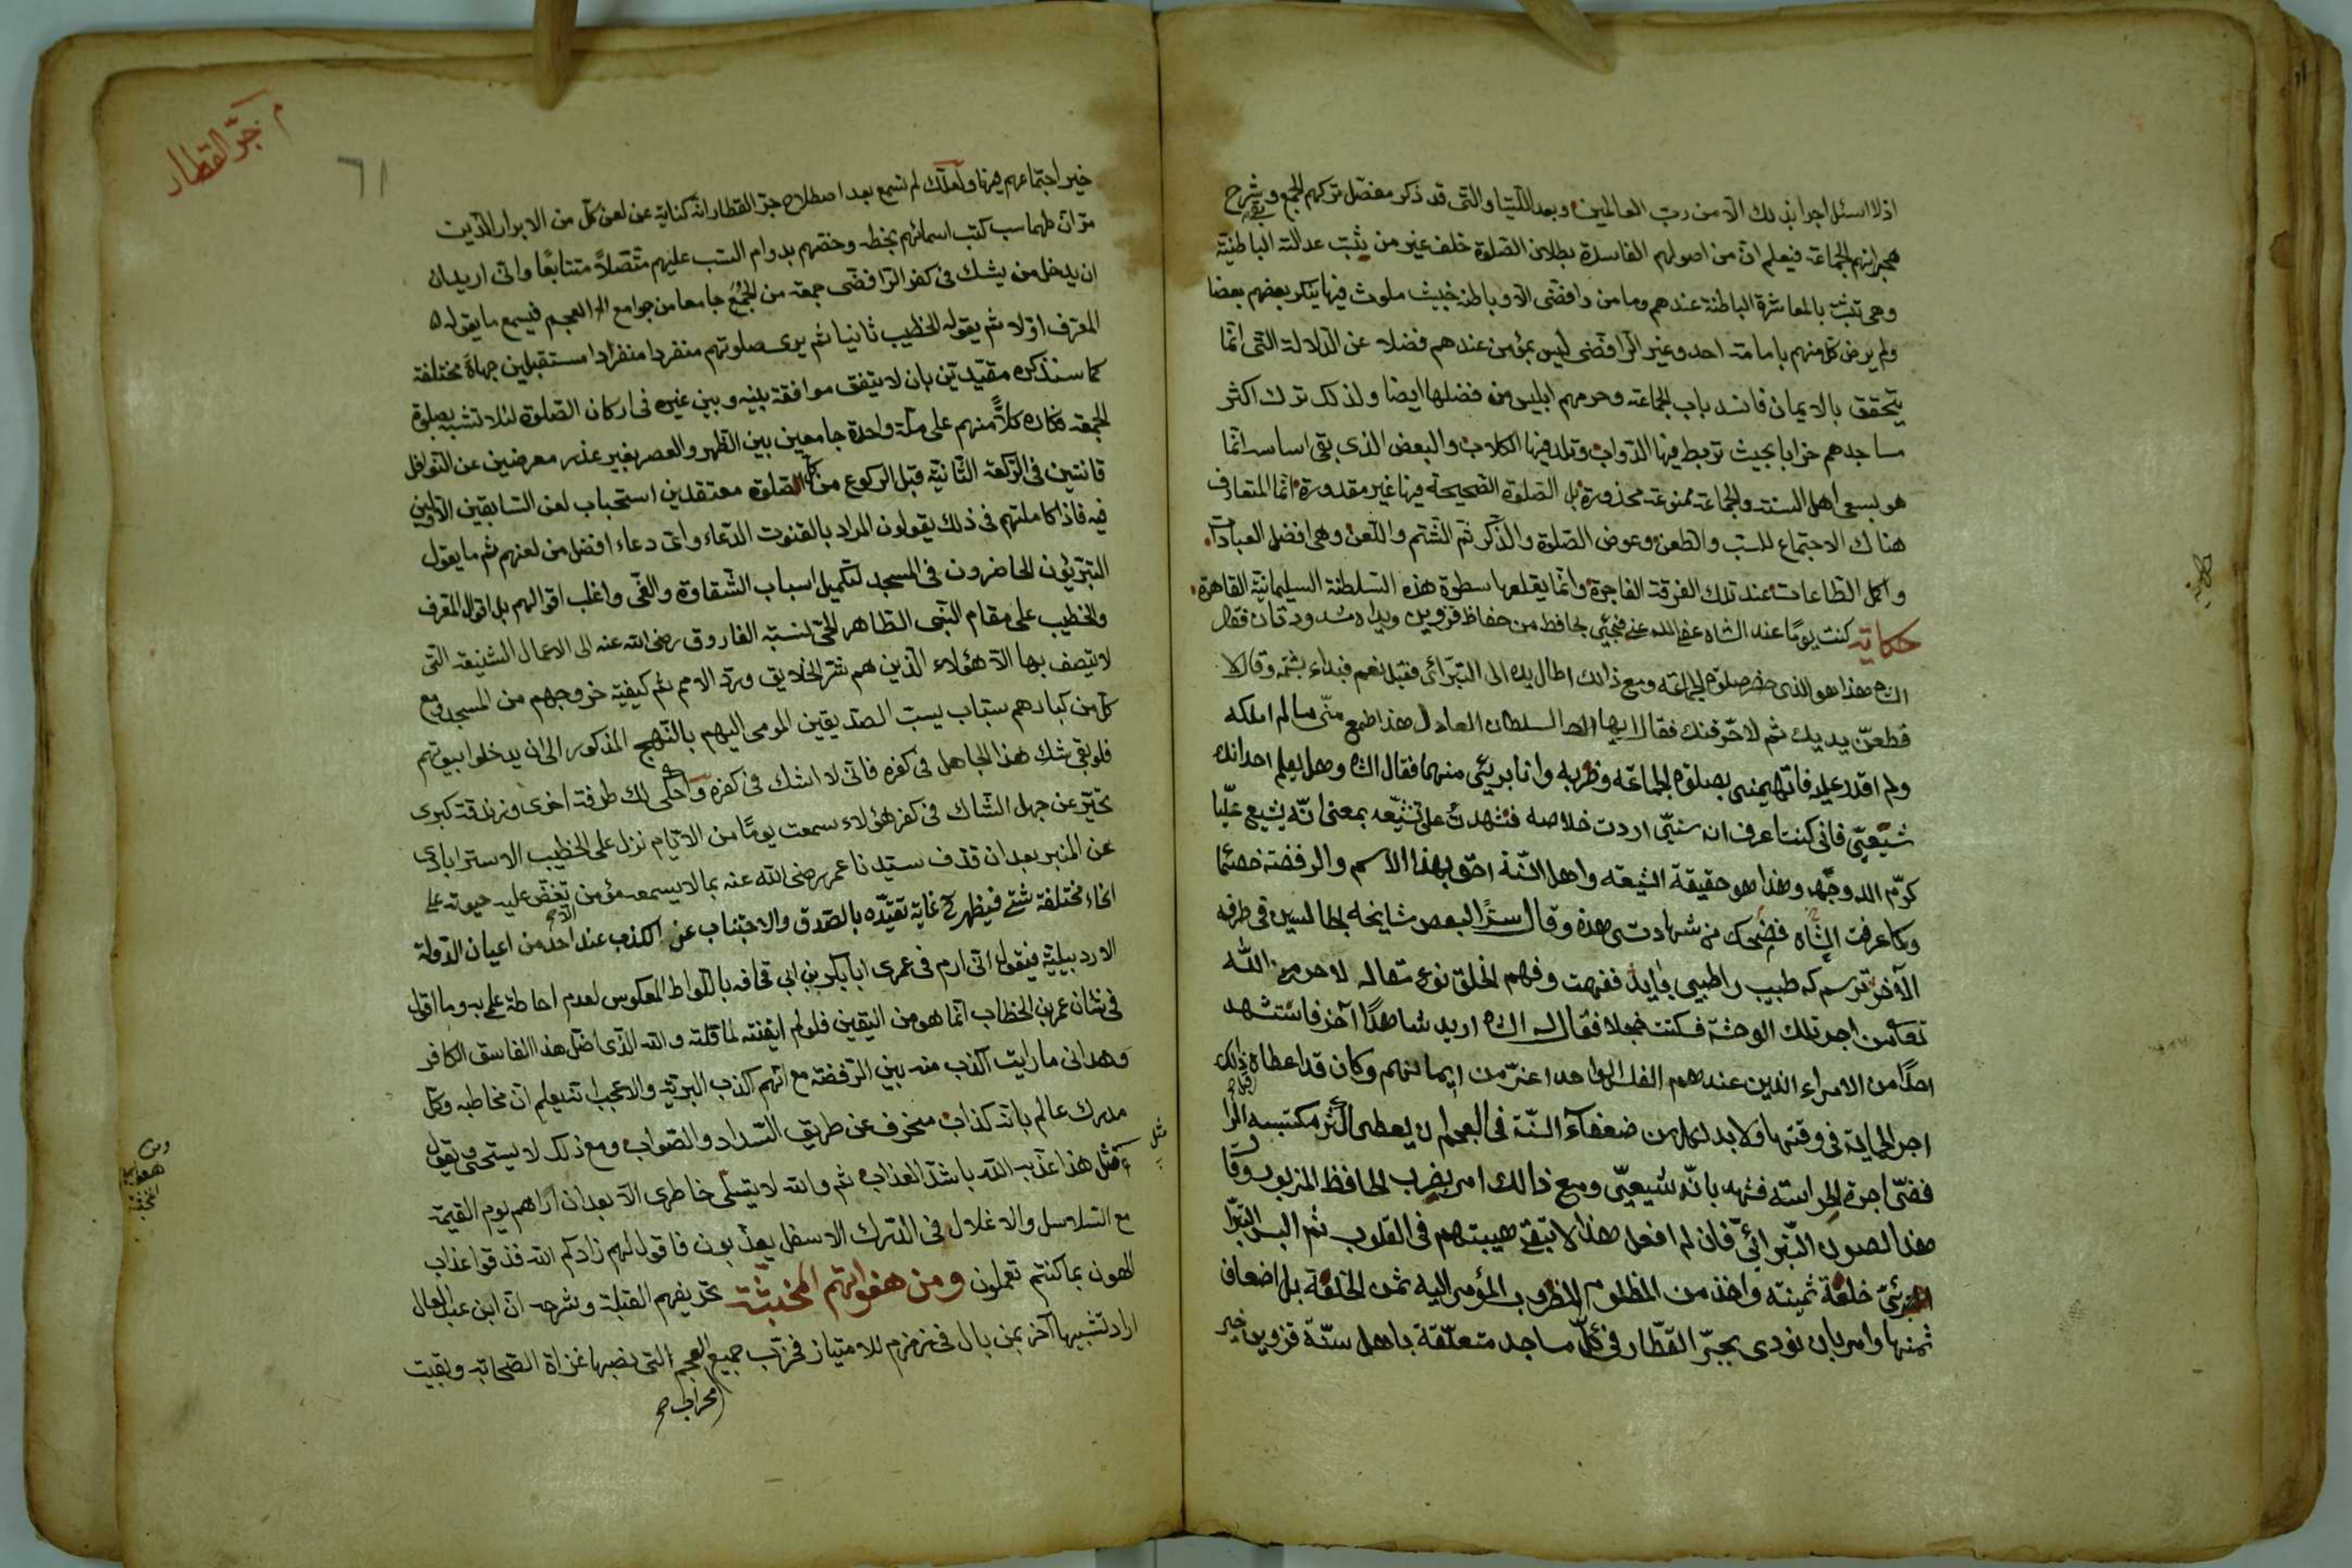 اذ لا اسئل اجرا بذلك الا من رب العالمين وبعد اللتيا والتي قد ذكر مفصل تركهم الجمع وبقي شرح
هجرانهم الجماعة فيعلم ان من اصولهم الفاسدة بطلان الصلوة خلف غير من يثبت عدالته الباطنية
وهي تثبت بالمعاشرة الباطنة عندهم وما من رافضي الا وباطنه خبيث ملوث فيها ينكر بعضهم بعضا
ولم يرض كل منهم بامامة احد وغير الرافضي ليس بمؤمن عندهم فضلا عن الدلالة التي انما
يتحقق بالايمان فانسد باب الجماعة وحرمهم ابليس من فضلها ايضا ولذلك ترك اكثر
مساجدهم خرابا بحيث تربط فيها الدواب وتلد فيها الكلاب والبعض الذي بقي اساسه انما
هو بسعي اهل السنة والجماعة ممنوعة محذورة بل الصلوة الصحيحة فيها غير مقدورة انما المتعارف
هناك الاجتماع للسب والطعن وعوض الصلوة والذكر ثم الشتم واللعن وهي افضل العبادات
واكمل الطاعات عند تلك الفرقة الفاجرة وانما يقلعها سطوة هذه السلطنة السليمانية القاهرة
حكاية كنت يوما عند الشاه عفا الله عني فجيئ بحافظ من حفاظ قزوين ويداه مشدودتان فقال
الشاه هذا هو الذي حضر صلوة الجماعة ومع ذالك اطال يده الى التبرائي فقيل نعم فبداء بشتمه وقال لا
قطعن يديك ثم لاحرقنك فقال ايها السلطان العادل هذا طمع مني مالم املكه
ولم اقدر عليه فاتهمني بصلوة الجماعة وضربه وانا بريئ منهما فقال الشاه وهل يعلم احد انك
شيعي فاني كنت اعرف انه سني اردت خلاصه فشهدت على تشيعه بمعنى انه يشيع عليا
كرم الله وجهه وهذا هو حقيقة الشيعه واهل السنة احق بهذا الاسم والرفضة خصما
وكما عرفت الشاه فضحك من شهادتي هذه وقال سرا لبعض مشايخه الجالسين في طرفه
الآخر ترسم كه طبيب را طبيبي بايد ففهمت وفهم الخلق نوع مقاله لا حرمه الله
تعالى من اجر تلك الوحشة فكنت خجلا فقال له الشاه اريد شاهدا آخر فاستشهد
احدا من الامراء الذين عندهم الفلس الواحد اعز من ايمانهم وكان قد اعطاه ذلك
اجر الحماية في وقتها ولا بد لكل من ضعفآء السنة في العجم ان يعطي اكثر مكتسبه
اجرة الحراسة فشهد بانه شيعي ومع ذالك امر بضرب الحافظ المزبور وقال
هذا لصون التبرائي فان لم افعل هذا لا تبقى هيبتهم في القلوب ثم البس
خلعة ثمينة واخذ من المظلوم المضروب المؤمى اليه ثمن الخلعة بل اضعاف
ثمنها وامر بان نودي بجر القطار في كل مساجد متعلقة باهل سنة قزوين خير
م جر القطار
٦١
خير اجتماعهم فيها ولعلك لم تسمع بعد اصطلاح جر القطار انه كناية عن لعن كل من الابرار الذين
مر ان طهماسب كتب اسمائهم بخطه وخصهم بدوام السب عليهم متصلا متتابعا واني اريد ان
ان يدخل من يشك في كفر الرافضي جمعة من الجمع جامعا من جوامع العجم فيسمع ما يقوله
المعرف اولا ثم يقوله الخطيب ثانيا ثم يرى صلوتهم منفردا منفردا مستقبلين جهاة مختلفة
كما سنذكره مقيدين بان لا يتفق موافقة بينه وبين غيره في اركان الصلوة لئلا تشبه بصلوة
الجمعة فكان كلا منهم على ملة واحدة جامعين بين الظهر والعصر بغير عذر معرضين عن النوافل
قانتين في الركعة الثانية قبل الركوع من كل الصلوة معتقدين استحباب لعن السابقين الاولين
فيه فاذا كاملتهم في ذلك يقولون المراد بالقنوت الدعاء واي دعاء افضل من لعنهم ثم ما يقول
التبرئون الحاضرون في المسجد لتكميل اسباب الشقاوة والغي واغلب اقوالهم بل اقوال المعرف
والخطيب على مقام النبي الطاهر للحي لنسبة الفاروق رضي الله عنه الى الاعمال الشنيعة التي
لا يتصف بها الا هؤلاء الذين هم شر الخلايق وردّ الامم ثم كيفية خروجهم من المسجد ومع
كل من كبارهم سباب يسب الصديقين المومى اليهم بالنهج المذكور الى ان يدخلوا بيوتهم
فلو بقي شك هذا الجاهل في كفره فاني لا اشك في كفره واحكي لك طرفة اخرى وزندقة كبرى
تخبر عن جهل الشاك في كفر هؤلاء سمعت يوما من الايام نزل على الخطيب الاسترابادي
عن المنبر بعد ان قذف سيدنا عمر رضي الله عنه بما لا يسمعه مؤمن تغض عليه حيوته على
انحاء مختلفة شتى فيظهر غاية تقيده بالصدق والاجتناب عن الكذب عند احد من اعيان الدولة
الاردبيلية فيقول اني ارم في عمري ابابكر بن ابي قحافه باللواط المعكوس لعدم احاطة علمي به وما اقول
في شان عمر بن الخطاب انما هو من اليقين فلو لم ايقنته لما قلته والله الذي اضل هذا الفاسق الكافر
وهداني ما رايت اكذب منه بين الرفضة مع انهم اكذب البرية والاعجب انه يعلم ان مخاطبه وكل
مدرك عالم بانه كذاب منحرف عن طريق السداد والصواب ومع ذلك لا يستحي ويقول
أمثل هذا عذبه الله باشد العذاب ثم والله لا يتسلى خاطري الا بعد ان اراهم يوم القيمة
مع السلاسل والاغلال في الدرك الاسفل يعذبون فاقول لهم زادكم الله فذوقوا عذاب
الهون بما كنتم تعملون ومن هفواتهم المخبثة تحريفهم القبلة وشرحه ان ابن عبد العال
اراد تشبيها آخر بمن بال في زمزم للامتياز فخرب جميع العجم التي نصبها غزاة الصحابة وبقيت
محراب صح
حكاية
ومن
هفواتهم
المخبثة
مثل